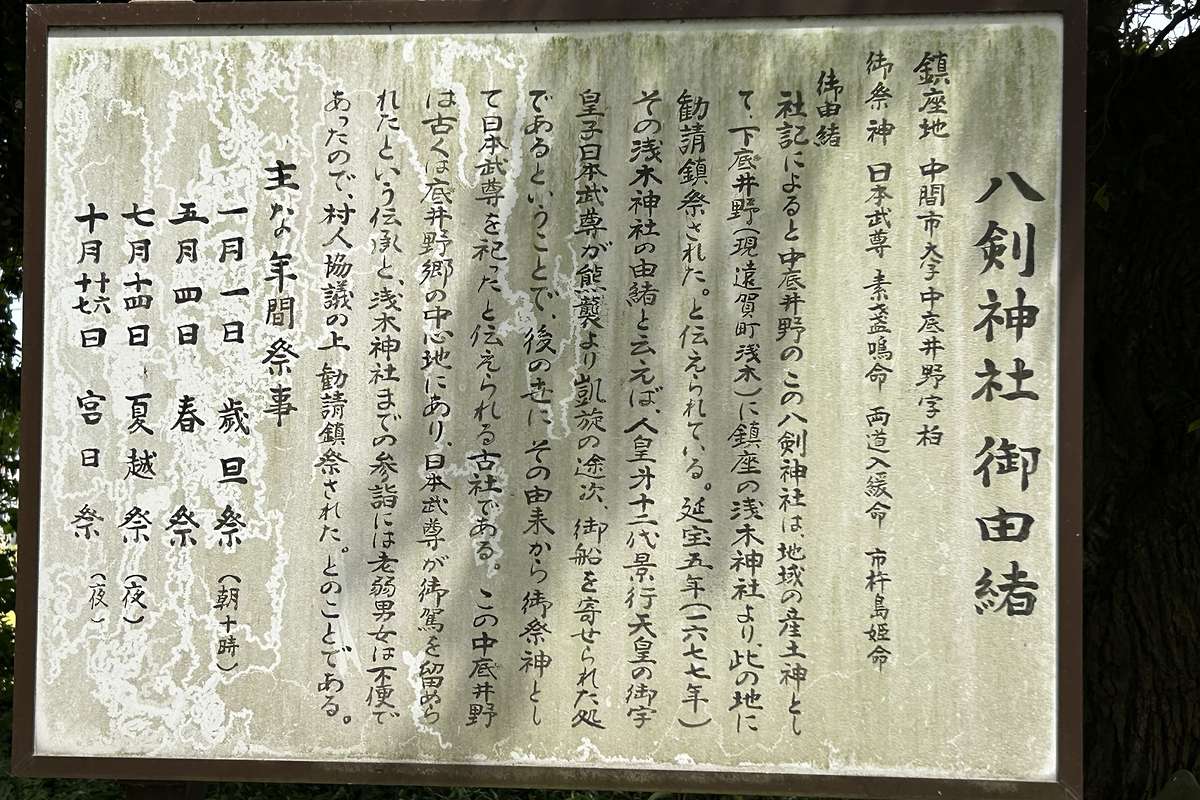 八剣神社 御由緒
鎮座地 中間市大字中底井野字柏
御祭神 日本武尊 素盞嗚命 両道入緩命 市杵島姫命
御由緒
社記によると中底井野のこの八剣神社は、地域の産土神とし
て、下底井野(現遠賀町浅木)に鎮座の浅木神社より、此の地に
勧請鎮祭された。と伝えられている。延宝五年(一六七七年)
その浅木神社の由緒と云えば、人皇廾十二代景行天皇の御宇
皇子日本武尊が熊襲より凱旋の途次、御船を寄せられた処
であるということで、後の世に その由来から御祭神とし
て日本武尊を祀ったと伝えられる古社である。この中底井野
は古くは底井野郷の中心地にあり、日本武尊が御駕を留めら
れたという伝承と、浅木神社までの参詣には老弱男女は不便で
あったので、村人協議の上 勧請鎮祭された。とのことである。
主な年間祭事
一月一日 歳旦祭 (朝十時)
五月四日 春祭
七月十四日 夏越祭 (夜)
十月十六十七日 宮日祭 (夜)